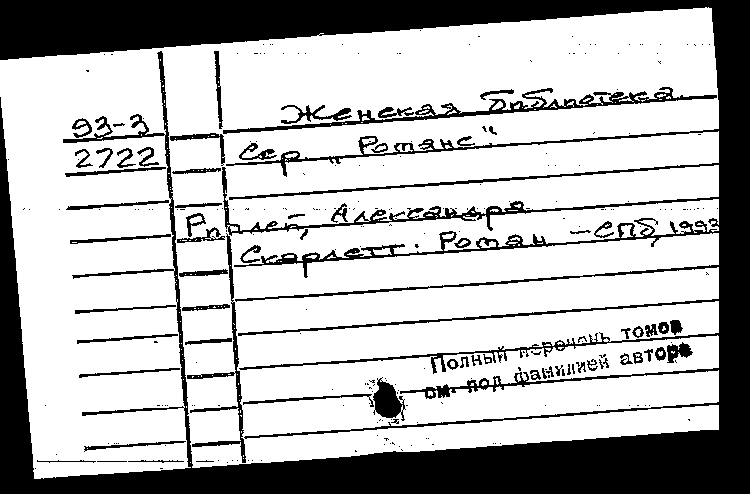 93-3
2722
Женская библиотека.
Сер. "Романс".
Риплей, Александра
Скарлетт: Роман - СПб, 1993
Полный перечень томов
см. под фамилией автора